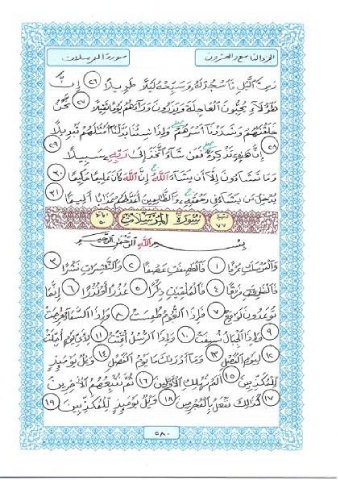 الجزء التاسع والعشرون
سورة المرسلات
وَمِنَ الَّيْلِ فَاسْجُدْ لَهُ وَسَبِّحْهُ لَيْلًا طَوِيلًا ٢٦ إِنَّ
هَٰؤُلَاءِ يُحِبُّونَ الْعَاجِلَةَ وَيَذَرُونَ وَرَاءَهُمْ يَوْمًا ثَقِيلًا ٢٧ نَحْنُ
خَلَقْنَاهُمْ وَشَدَدْنَا أَسْرَهُمْ وَإِذَا شِئْنَا بَدَّلْنَا أَمْثَالَهُمْ تَبْدِيلًا
٢٨ إِنَّ هَٰذِهِ تَذْكِرَةٌ فَمَنْ شَاءَ اتَّخَذَ إِلَىٰ رَبِّهِ سَبِيلًا ٢٩
وَمَا تَشَاءُونَ إِلَّا أَنْ يَشَاءَ اللَّهُ إِنَّ اللَّهَ كَانَ عَلِيمًا حَكِيمًا ٣٠
يُدْخِلُ مَنْ يَشَاءُ فِي رَحْمَتِهِ وَالظَّالِمِينَ أَعَدَّ لَهُمْ عَذَابًا أَلِيمًا ٣١
سُورَةُ الْمُرْسَلَاتِ
بِسْمِ اللَّهِ الرَّحْمَٰنِ الرَّحِيمِ
وَالْمُرْسَلَاتِ عُرْفًا ١ فَالْعَاصِفَاتِ عَصْفًا ٢ وَالنَّاشِرَاتِ نَشْرًا ٣
فَالْفَارِقَاتِ فَرْقًا ٤ فَالْمُلْقِيَاتِ ذِكْرًا ٥ عُذْرًا أَوْ نُذْرًا ٦ إِنَّمَا
تُوعَدُونَ لَوَاقِعٌ ٧ فَإِذَا النُّجُومُ طُمِسَتْ ٨ وَإِذَا السَّمَاءُ فُرِجَتْ
٩ وَإِذَا الْجِبَالُ نُسِفَتْ ١٠ وَإِذَا الرُّسُلُ أُقِّتَتْ ١١ لِأَيِّ يَوْمٍ أُجِّلَتْ
١٢ لِيَوْمِ الْفَصْلِ ١٣ وَمَا أَدْرَاكَ مَا يَوْمُ الْفَصْلِ ١٤ وَيْلٌ يَوْمَئِذٍ
لِلْمُكَذِّبِينَ ١٥ أَلَمْ نُهْلِكِ الْأَوَّلِينَ ١٦ ثُمَّ نُتْبِعُهُمُ الْآخِرِينَ
١٧ كَذَٰلِكَ نَفْعَلُ بِالْمُجْرِمِينَ ١٨ وَيْلٌ يَوْمَئِذٍ لِلْمُكَذِّبِينَ ١٩
٥٨٠